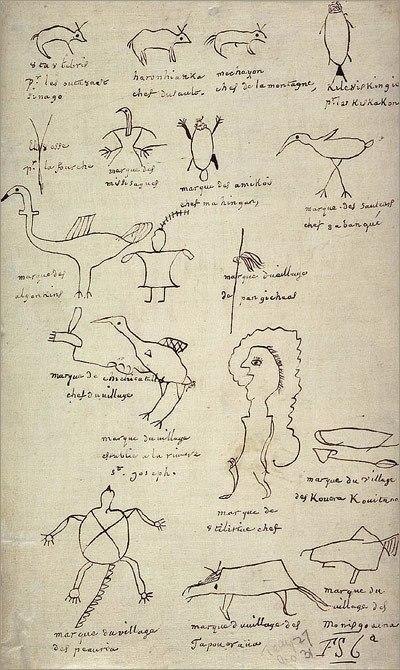 8tasliбris
pr les outaouacs
sinago
haronhianka
chef du sault.
mechayon
chef de la montagne,
Kileouiskingié
pr les Kiskakon
Elaouesse
pr la fourche
marque des
missisagues
marque des amikois
chef mahingan,
marque des saulteurs
chef 8abangué
marque des
algonkins
marque du village
de pangicheas
marque de chichicatalo
chef du village
marque du village
establie a la riviere
st. joseph.
marque de
8tilirine chef
marque du village
des Kouera Kouitanon
marque du village
des peauria
marque du village des
Tapouaroua
marque du
village des
monisgouaena
27
31
F56
a